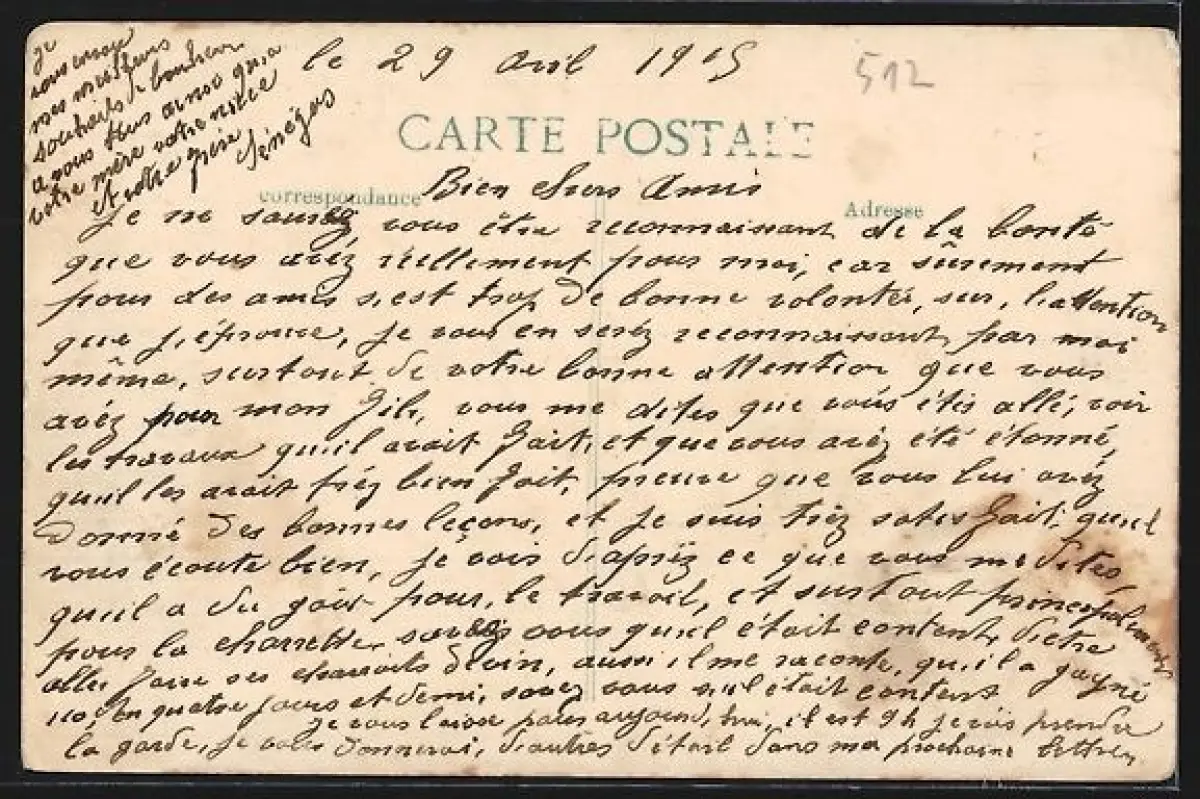 le 29 Avril 1915
512
CARTE POSTALE
Je
vous envoye
mes meilleurs
souhaits de bonheur
a vous tous ainsi qu'a
votre mère votre nièce
et votre
correspondance
Adresse
Bien chers Amis
Je ne saurez vous être reconnaissant de la bonté
que vous avéz réellement pour moi, car sûrement
pour des amis s,est trop de bonne volonté, sur, l,attention
que j,éprouve, je vous en seréz reconnaissant par moi
même, surtout de votre bonne attention que vous
avéz pour mon fils, vous me dites que vous étis allé, voir
les travaux qu,il avait fait, et que vous avéz été étonné,
qu,il les avait fréz bien fait, preuve que vous lui avéz
donné des bonnes leçons, et je suis tréz satisfait, qu,il
vous écoute bien, je vois d,apréz ce que vous me dites,
qu,il a du goût pour, le travail, et surtout principalement
pour la charrette vous qu,il était content, d'etre
aller faire ses charroits de vin, aussi il me raconte, qu,il a gagné
en quatre jours et demi, savez vous s,il était content
je vous laisse pour aujourd,hui, il est 9h je vais prendre
la garde, je vous donnerai, d,autres détail dans ma prochaine lettre